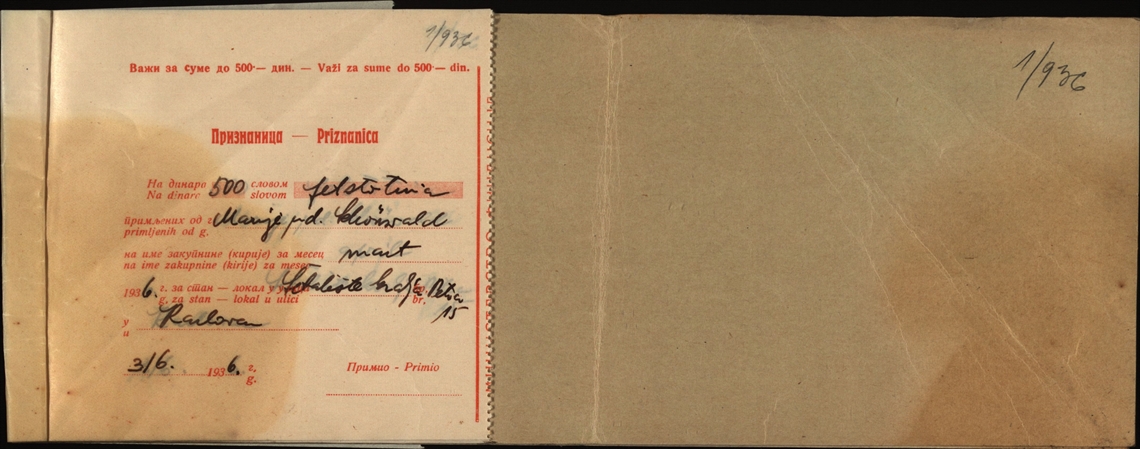 1/936
Важи за суме до 500·— дин. — Važi za sume do 500·— din.
Признаница — Priznanica
На динаре 500 словом
Na dinare slovom petstotina
примљених од г. Marije ud. Schönwald
primljenih od g.
на име закупнине (кирије) за месец mart
na ime zakupnine (kirije) za mesec
1936. г. за стан — локал у улици Šetalište kralja Petra
g. za stan — lokal u ulici br. 15
у
и Karlovac
3/6. 1936. г.
g.
Примио - Primio
1/936